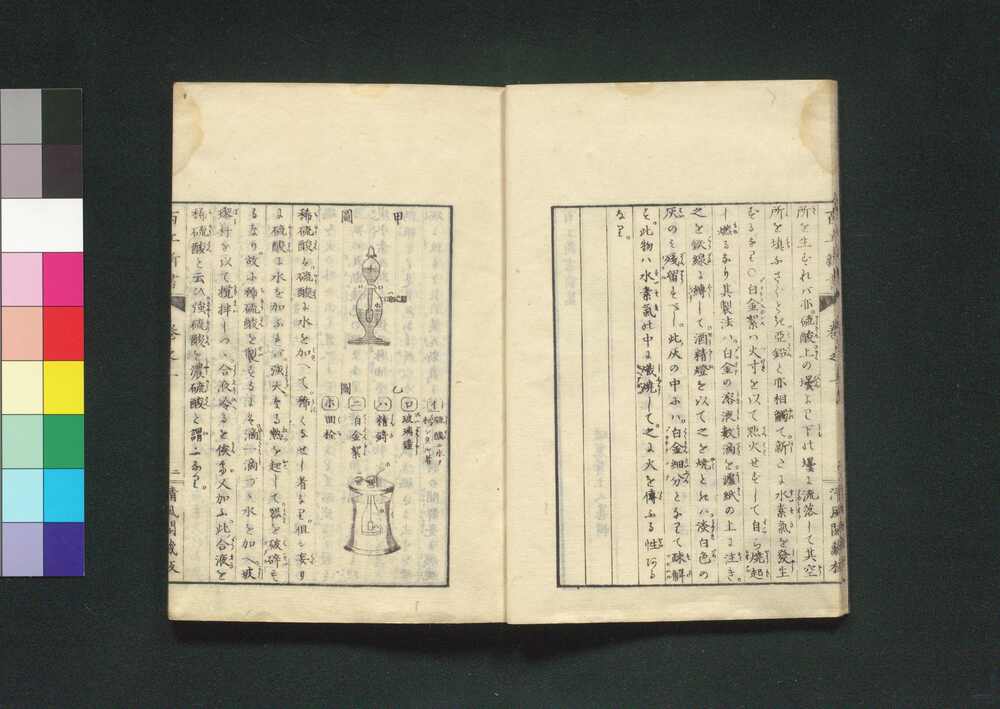 所を生ずれバ亦硫酸上の壜より下の壜に流落して其空
所を填ふさぐときハ亜鉛と亦相觸て新に水素氣を發生
するなり○白金絮ハ火寸を以て點火せずして自ら焼起
し燃るなり其製法ハ白金の溶液數滴を濃紙の上に注ぎ
之を鉄線に縛して酒精燈を以て之を焼ときハ淡白色の
灰のミ殘留すべし此灰の中にハ白金細分となりて疎解
す。此物ハ水素氣の中に熾焼して之に火を傳ふる性ある
なり。
甲
圖
乙
圖
イ 硫酸ニ水ノ
ロ 玻璃鐘
ハ 精錡
ニ 白金絮
ホ 回栓
稀硫酸ハ硫酸に水を加へて、稀くなせし者なり但し妄り
に硫酸に水を加ふときハ強大なる熱を起して器を破碎す
るなり故に稀硫酸を製するにハ一滴一滴づゝ水を加へ玻
璃杆を以て攪拌しつゝ合液冷るを俟て又加ふ此合液を
稀硫酸と云ひ強硫酸を濃硫酸と謂ふなり。
百工新書
卷之一
二
清風閣蔵板